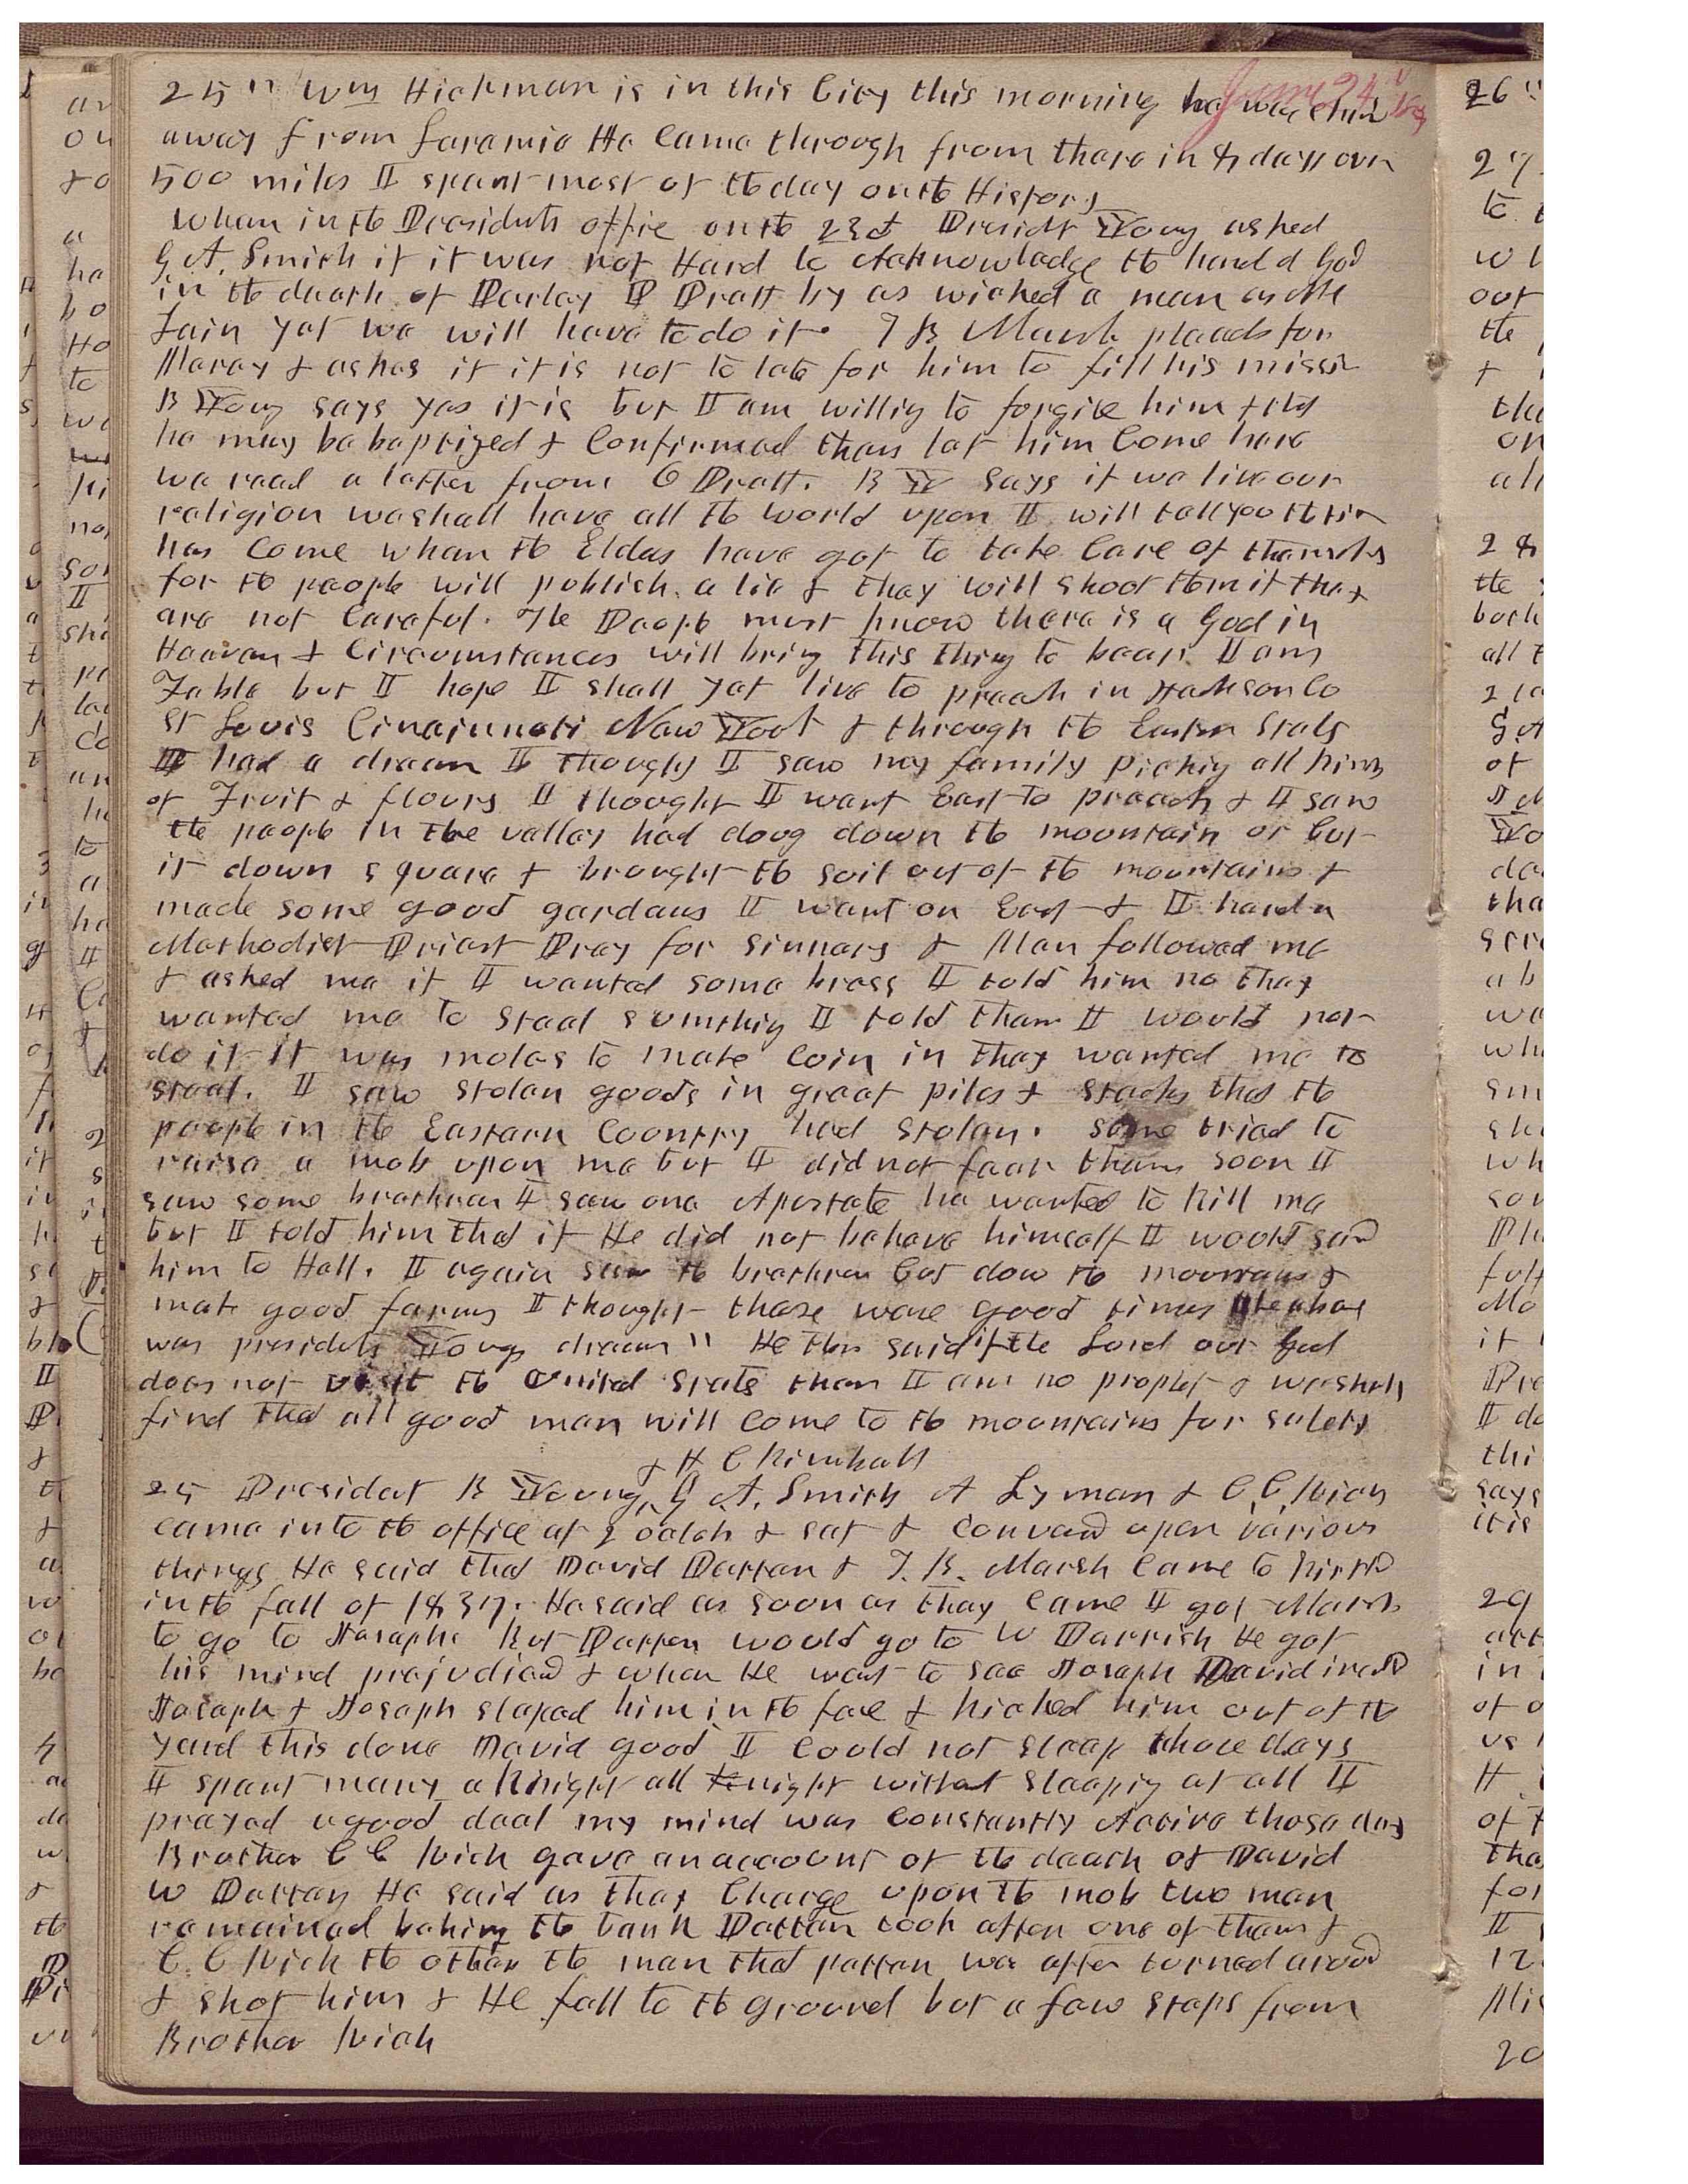 25" Wm Hickman is in this City this morning he was
June 24
away from Laramie He came through from there in 8 days over
500 miles I spent most of the day on the History
When in the Presidents office on the 23d Presidt Young asked
G A. Smith if it was not Hard to Acknowledge the hand of God
in the death of Parley P Pratt by as wicked a man as Mc
Lain yet we will have to do it. T B Marsh pleads for
Mercy & askes if it is not to late for him to fill his missin
B Young says yes it is but I am willig to forgive him &
he may be baptized & Confirmed then let him Come here
we read a letter from O Pratt. B Y says if we live our
religion we shall have all the world upon I will tell you the tim
has Come when the Elders have got to take Care of themselvs
for the people will publish a lie & they will shoot them if they
are not Careful. The People must know there is a God in
Heaven & Circumstances will bring this thing to bear. I am
Feble but I hope I shall yet live to preach in Jackson Co
St Louis Cincinnati New York & through the Eastern States
I had a dream I thought I saw my family Pickig all kinds
of Fruit & flours I thought I went East to preach & I saw
the people in the valley had doug down the mountain or Cut
it down square & brought the soil out of the mountains &
made some good gardens I went on East & I heard a
Methodist Priest Pray for sinners & Man followed me
& asked me if I wanted some brass I told him no they
wanted me to Steal sumthig I told them I would not
do it It was molds to make Coin in they wanted me to
steal. I saw stolen goods in great piles & stacks that the
people in the Eastern Country had stolen. Some tried to
raise a mob upon me but I did not fear them soon I
saw some brethren I saw one Apostate he wanted to kill me
but I told him that if He did not behave himself I would send
him to Hell. I again saw the brethren Cut dow the mountains &
make good farms I thought these were good times
was presidets Youngs dream" He then said if the Lord our God
does not visit the United States then I am no prophet & we shall
find that all good men will Come to the mountains for safety
& H C Kimball
25 President B Young, G A. Smith A Lyman & C, C, Rich
came into the office at 2 oclok & sat & Conversed upon various
things He said that David Patten & T. B. Marsh Came to Kirtld
in the fall of 1837. He said as soon as they Came I got Marsh
to go to Joseph But Patten would go to W Parrish He got
his mind prejudiced & when He went to see Joseph David insltd
Joseph & Joseph slaped him in the face & kicked him out of the
yard this done David good I Could not sleep those days
I spent many a Knight all night without sleepig at all I
prayed a good deal my mind was Constantly Active those days
Brother C C Rich gave an account of the death of David
W Patten He said as they Charge upon the mob two men
remained behing the bank Patten took after one of them &
C. C Rich the other the man that patten was after turned around
& shot him & He fell to the ground but a few steps from
Brother Rich